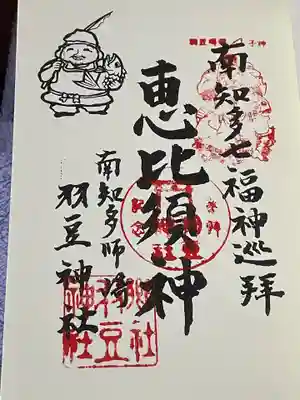 南知多七福神巡拜
恵比須神
南知多師崎
羽豆神社